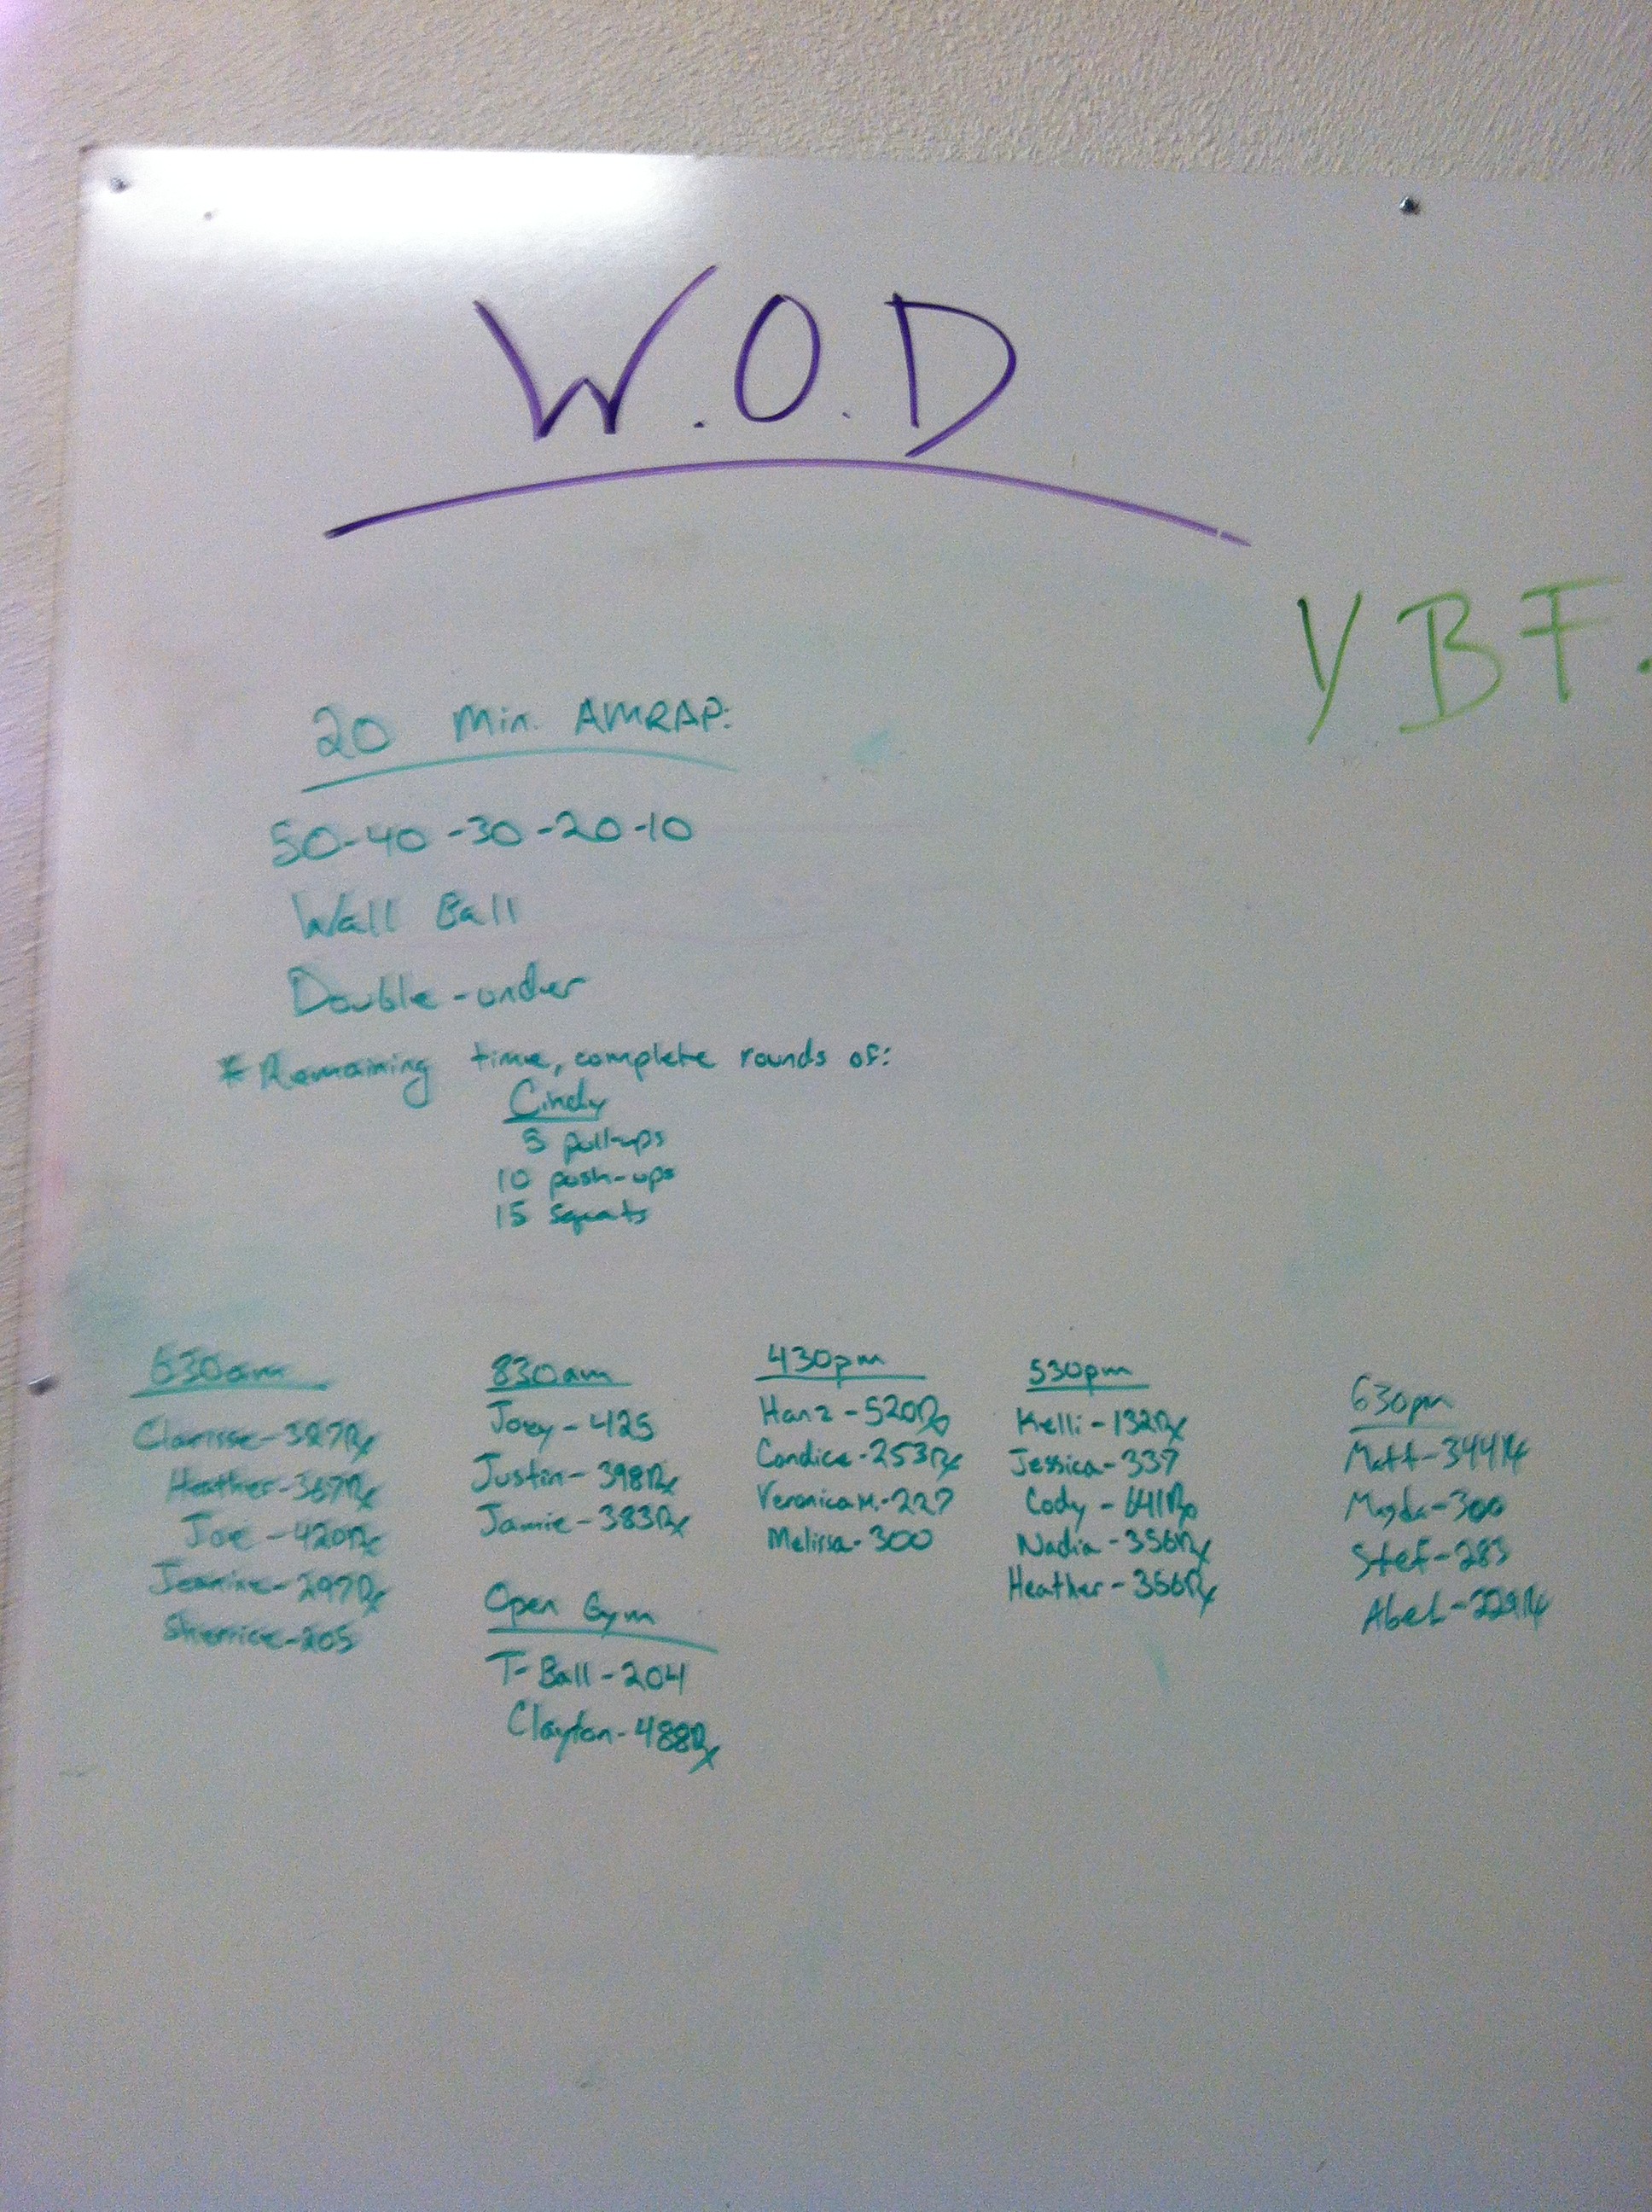 W.O.D
Y B F.
20 Min. AMRAP:
50-40-30-20-10
Wall Ball
Double-under
*Remaining time, complete rounds of:
Cindy
5 pull-ups
10 push-ups
15 squats
630am
Clarisse-387Rx
Heather-367Rx
Joe-420Rx
Jeanine-297Rx
Sherrice-205
830am
Joey-425
Justin-398Rx
Jamie-383Rx
Open Gym
T-Ball-204
Clayton-488Rx
430pm
Hanz-520Rx
Candice-253Rx
Veronica M.-227
Melissa-300
530pm
Kelli-132Rx
Jessica-337
Cody-641Rx
Nadia-356Rx
Heather-356Rx
630pm
Matt-344Rx
Magda-300
Stef-283
Abel-229Rx